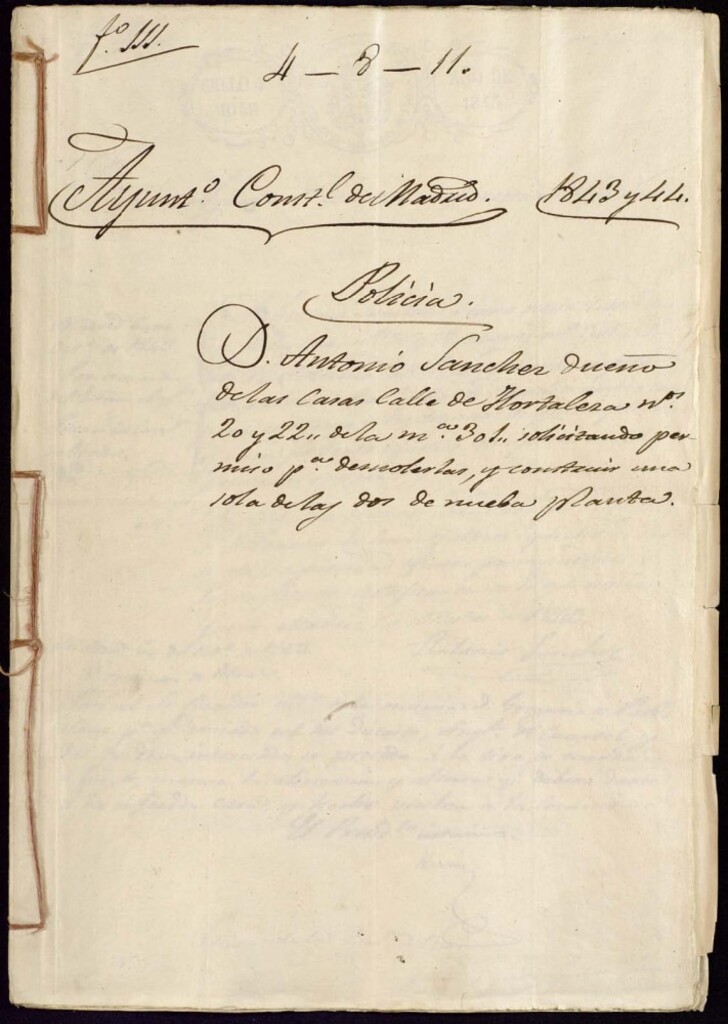 fº 111.
4 - 8 - 11.
Ayuntº Constl de Madrid. 1843 y 44.
Policia.
D. Antonio Sanchez dueño
de las Casas Calle de Hortaleza nos.
20 y 22,, de la mna. 301,, solicitando per-
miso pa. demolerlas, y construir una
sola de las dos de nueba planta.